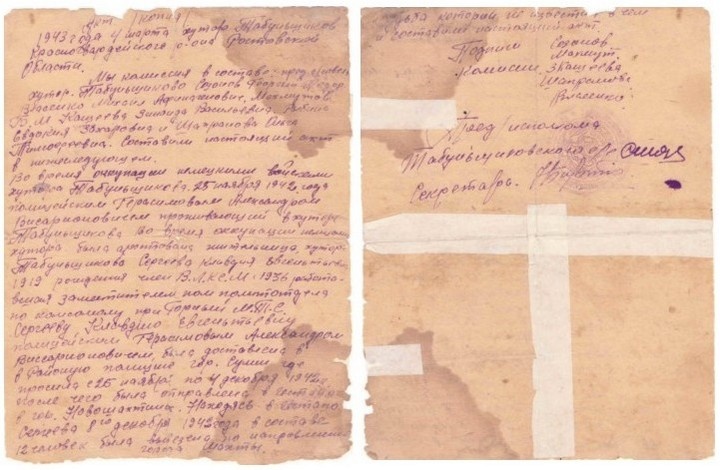 Акт /копия/
1943 года 4 марта хутора Табунщиков
Красногвардейского р-она Ростовской
Области.
Мы комиссия в составе пред.
хутор. Табунщиково Созонов
Власенко Михаил
В. М. Кащеева Зинаида Васильевна,
Евдокия Захаровна и Шахранова Ольга
Тимофеевна. Составили настоящий акт
в нижеследующем.
Во время оккупации немецкими войсками
хутора Табунщикова 25 ноября 1942 года
полицейским Герасимовым Александром
Висарионовичем проживающий в хуторе
Табунщикова во время оккупации
хутора была арестована жительница хутора
Табунщикова Сергеева Клавдия Евсентьевна
1919 рождения член В.Л.К.С.М. с 1936 работа-
вшая заместителем нач политотдела
по комсомолу при Горный М.Т.С.
Сергееву Клавдию Евсентьевну
полицейским Герасимовым Александром
Виссарионовичем, была доставлена в
в Районую полицию гор. Сулин где
просила с 25 ноября по 4 декабря 1942г
После чего была отправлена в гестапо
в гор. Новошахтинск. Находясь в гестапо
Сергеева 8го декабря 1942 года в составе
12 человек была вывезена по направлению
города Шахты.
судьба которой не известна в чем
и составлен настоящий акт.
Подписи Созонов
Комиссии Кащеева
Шахранова
Власенко
Пред исполкома
Табунщиковского с/с
Секретарь.